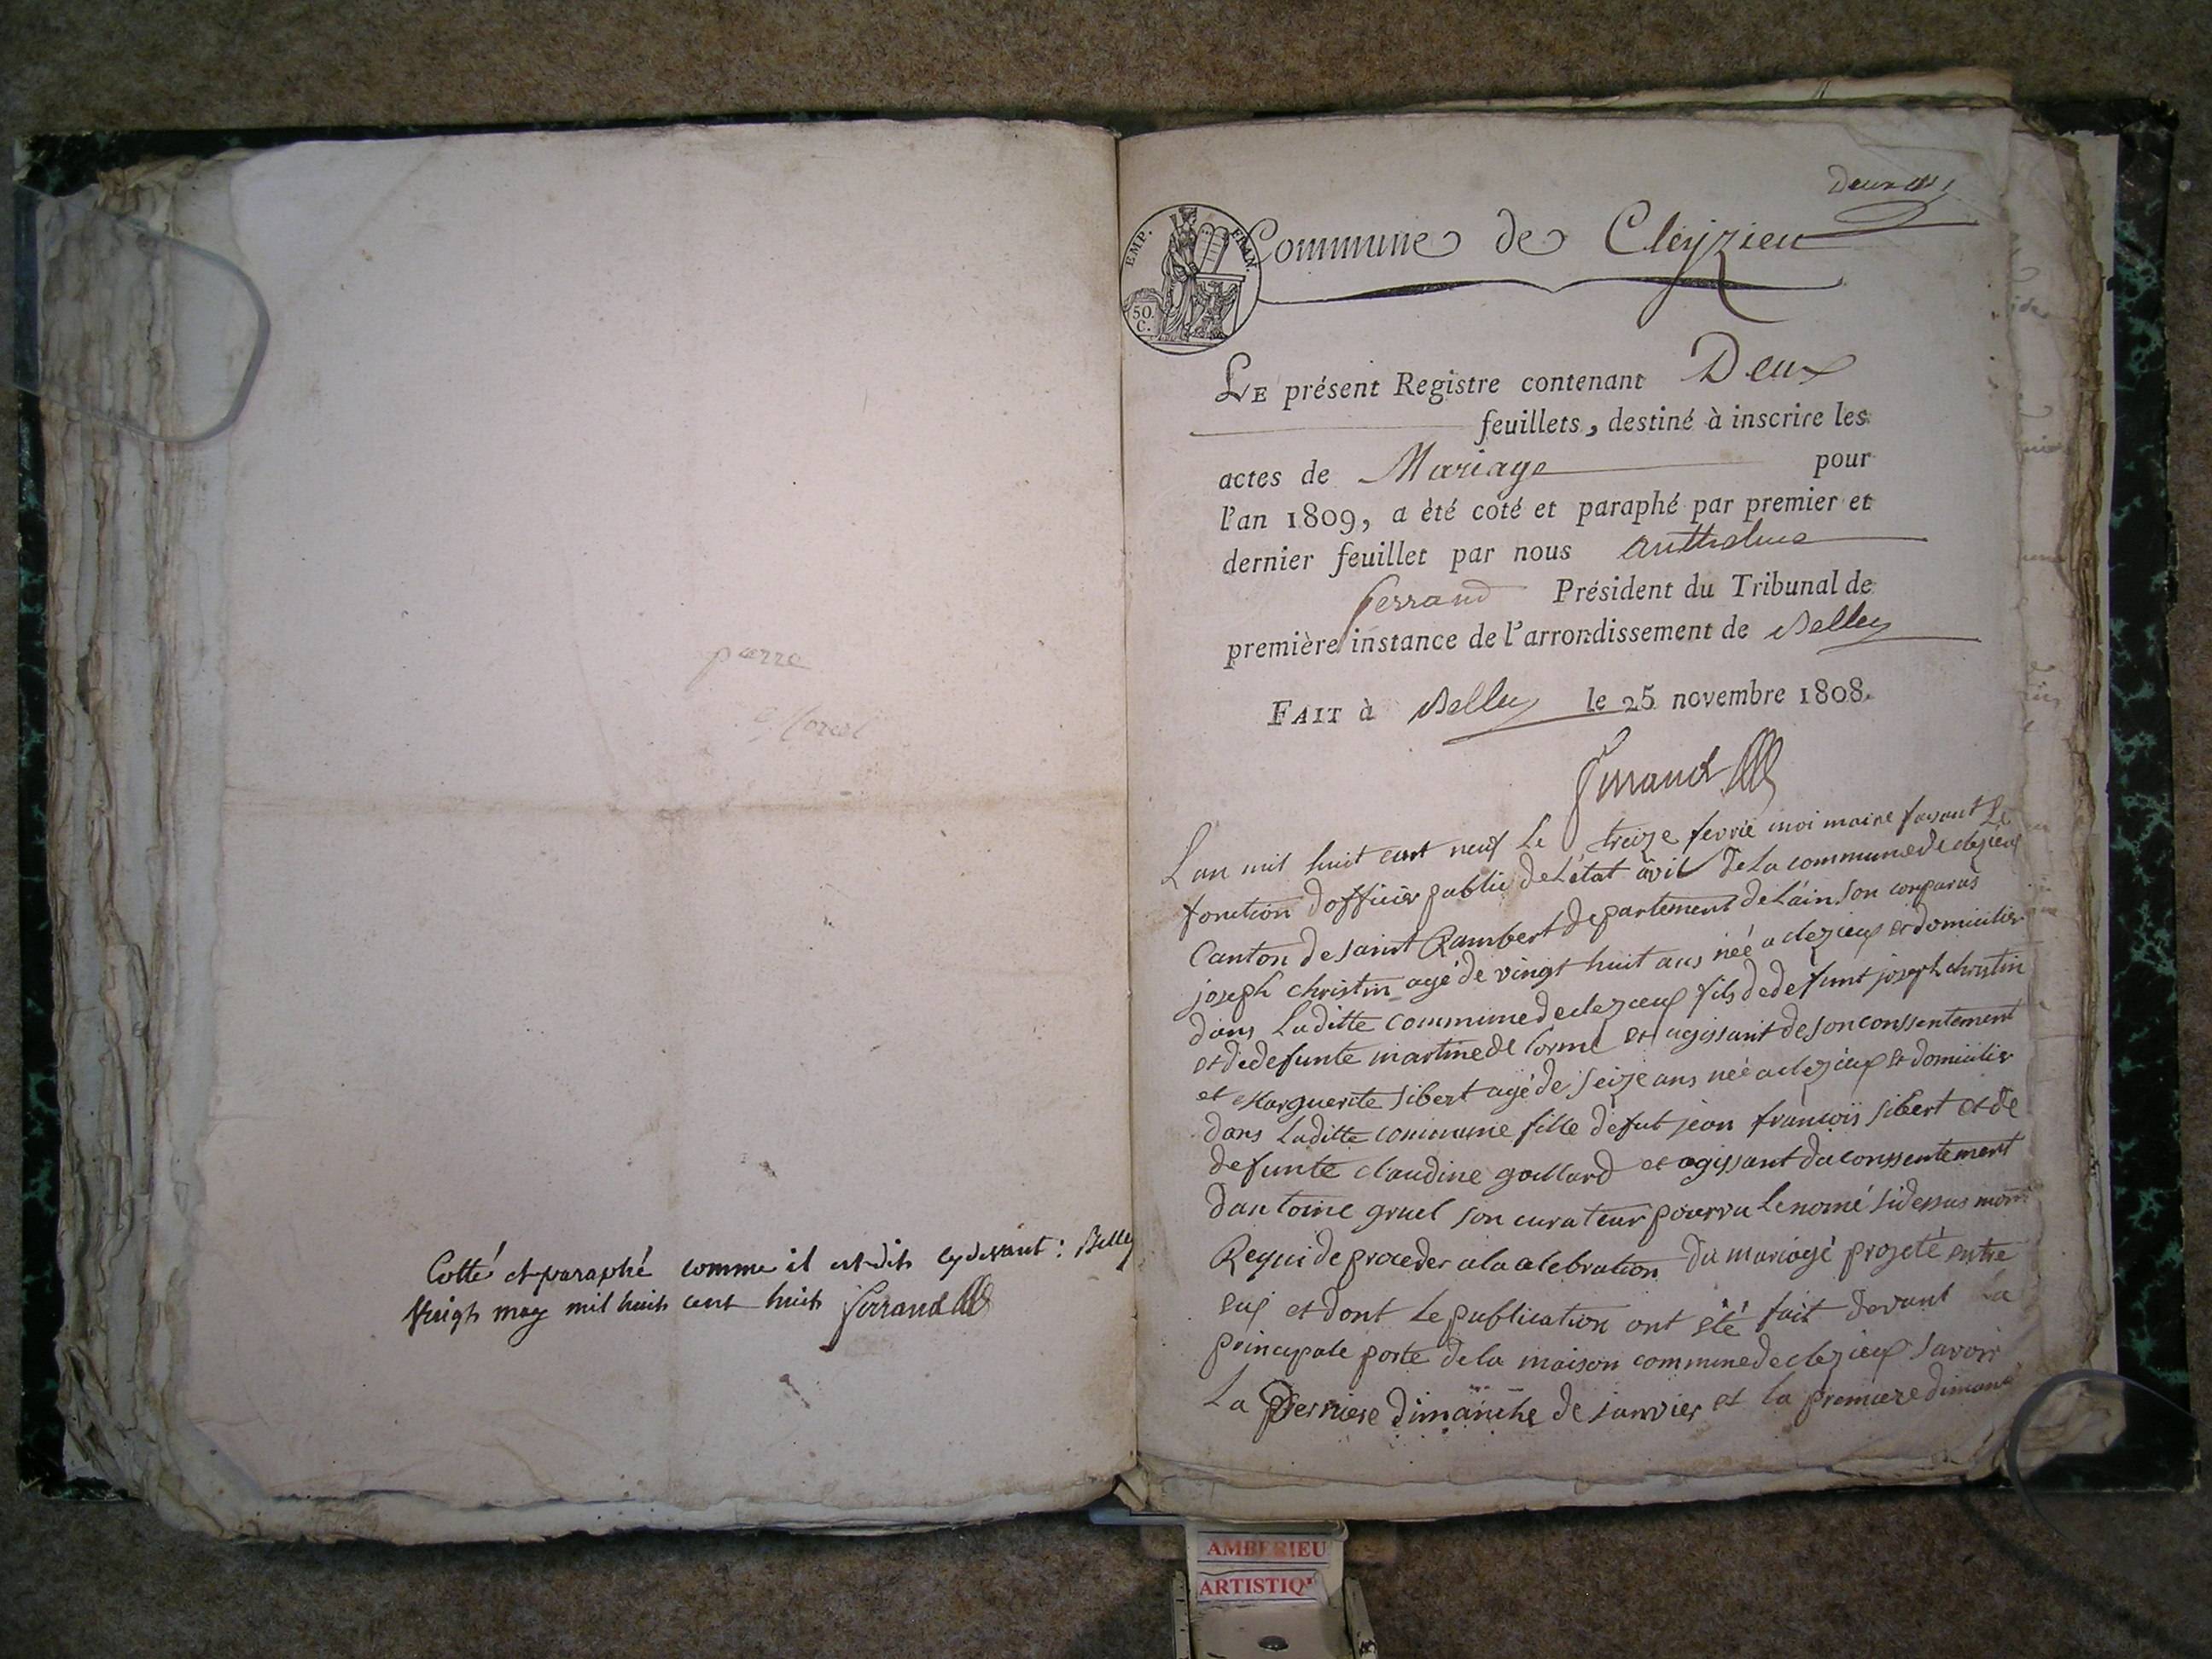 pierre
Cotté et paraphé comme il est dit cy devant : Belley
Vingt may mil huit cent huit Ferrand
Deux
EMP. FRAN.
50.
C.
Commune de Cleyzieu
LE présent Registre contenant Deux
feuillets, destiné à inscrire les
actes de Mariage pour
l'an 1809, a été coté et paraphé par premier et
dernier feuillet par nous Anthelme
Ferrand Président du Tribunal de
première instance de l'arrondissement de Belley
FAIT à Belley le 25 novembre 1808.
Ferrand
L an mil huit cent neuf Le treize fevrié moi maire faisant Le
fonction d officier public de L'état civil De La commune de clezieux
Canton de saint Rambert departement de L'ain son comparus
joseph christin agé de vingt huit ans néé a clezieux et domicilier
dans Laditte commune de clezieux fils de defunt joseph christin
et de defunte martine de Lorme et agissant de son conssentement
et Marguerite sibert agé de seize ans néé a clezieux et domicilier
dans Laditte commune fille de fut jean françois sibert et de
defunte claudine gaillard et agissant du conssentement
d antoine gruel son curateur pourvu Le nomé sidessus mont
Requi de proceder a la celebration du mariagé projeté entre
eux et dont Le publication ont été fait devant La
principale porte de la maison commune de clezieux savoir
La Derniere dimanche de janvier et la premiere dimanc
AMBERIEU
ARTISTIQ